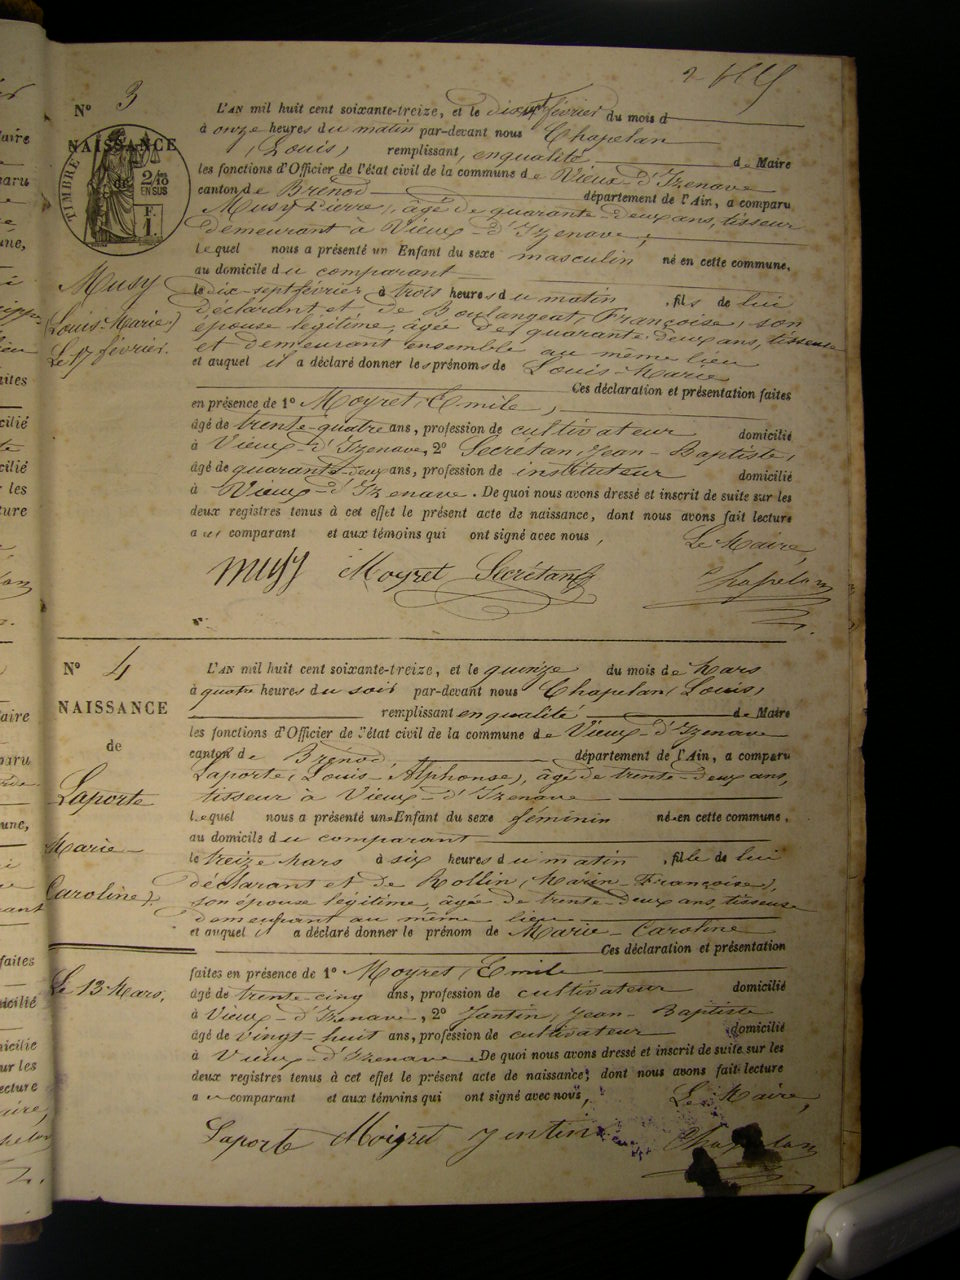 N° 3
NAISSANCE
de
TIMBRE
2/10
EN SUS
F.
1.
Musy
(Louis-Marie)
Le 17 février.
L'AN mil huit cent soixante-treize, et le dix-sept février du mois d
à onze heures du matin par-devant nous Chapelan
(Louis) remplissant, en qualité de Maire
les fonctions d'Officier de l'état civil de la commune de Vieux-d'Izenave
canton de Brénod département de l'Ain, a comparu
Musy Pierre, âgé de quarante-deux ans, tisseur
demeurant à Vieux-d'Izenave;
lequel nous a présenté un Enfant du sexe masculin né en cette commune,
au domicile du comparant
le dix-sept février à trois heures du matin, fils de lui
déclarant et de Boulangeat, Françoise, son
épouse légitime, âgée de quarante-deux ans, tisseuse
et demeurant ensemble au même lieu
et auquel il a déclaré donner les prénoms de Louis-Marie
Ces déclaration et présentation faites
en présence de 1° Moyret, Emile,
âgé de trente-quatre ans, profession de cultivateur domicilié
à Vieux-d'Izenave, 2° Secrétan, Jean-Baptiste,
âgé de quarante-deux ans, profession de instituteur domicilié
à Vieux-d'Izenave. De quoi nous avons dressé et inscrit de suite sur les
deux registres tenus à cet effet le présent acte de naissance, dont nous avons fait lecture
au comparant et aux témoins qui ont signé avec nous,
Le Maire,
Musy Moyret Secrétan Chapelan
N° 4
NAISSANCE
de
Laporte
Marie-
Caroline).
Le 13 Mars.
L'AN mil huit cent soixante-treize, et le quinze du mois de Mars
à quatre heures du soir par-devant nous Chapelan, Louis,
remplissant en qualité de Maire
les fonctions d'Officier de l'état civil de la commune de Vieux-d'Izenave
canton de Brénod, département de l'Ain, a comparu
Laporte, (Louis-Alphonse), âgé de trente-deux ans,
tisseur à Vieux-d'Izenave
lequel nous a présenté un Enfant du sexe féminin né en cette commune,
au domicile du comparant
le treize Mars à six heures du matin, fille de lui
déclarant et de Rollin, (Marie-Françoise),
son épouse légitime, âgée de trente-deux ans, tisseuse
demeurant au même lieu
et auquel il a déclaré donner le prénom de Marie-Caroline
Ces déclaration et présentation
faites en présence de 1° Moyret, Emile
âgé de trente-cinq ans, profession de cultivateur domicilié
à Vieux-d'Izenave, 2° Jantin, Jean-Baptiste
âgé de vingt-huit ans, profession de cultivateur domicilié
à Vieux-d'Izenave. De quoi nous avons dressé et inscrit de suite sur les
deux registres tenus à cet effet le présent acte de naissance; dont nous avons fait lecture
au comparant et aux témoins qui ont signé avec nous,
Le Maire,
Laporte Moigret Jentin Chapelan